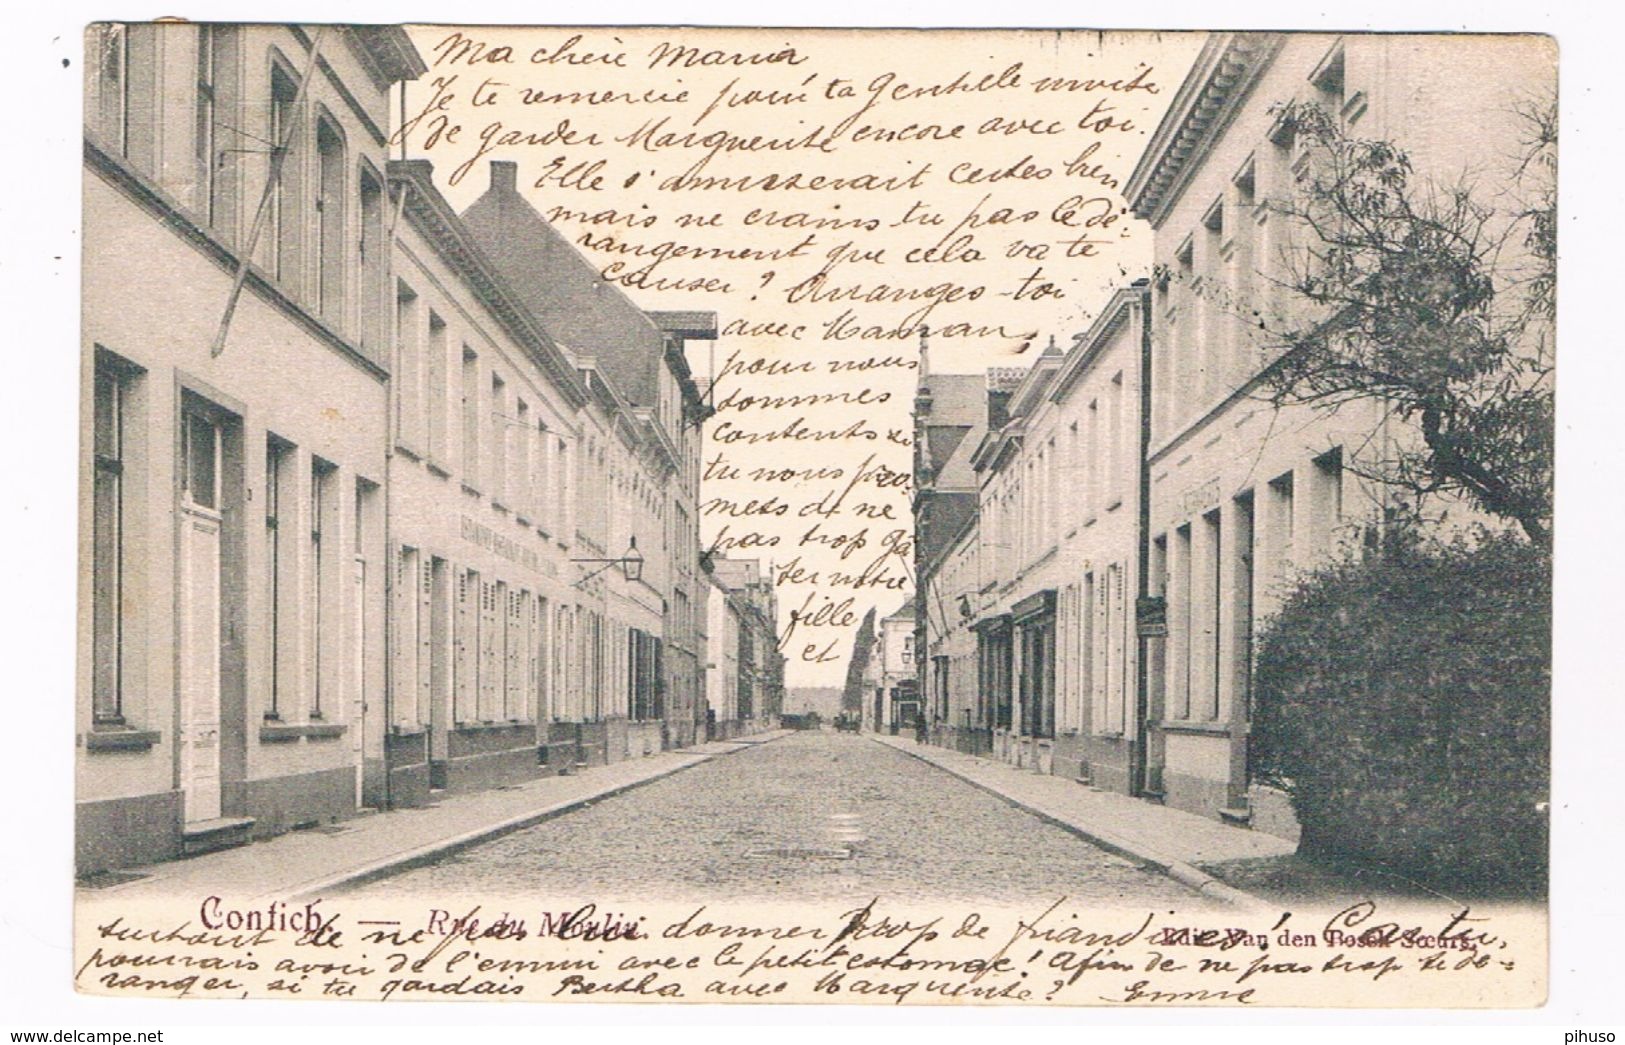 Ma chère Maria
Je te remercie pour ta gentille invite
de garder Marguerite encore avec toi.
Elle s'amuserait certes bien
mais ne crains tu pas le dé-
rangement que cela va te
causer ? Arranges-toi
avec Maman,
pour nous
sommes
contents si
tu nous pro-
mets de ne
pas trop gâ
ter notre
fille
et
Contich. — Rue du Moulin.
Edit. Van den Bosch Sœurs.
surtout de ne pas lui donner trop de friandises! Car tu
pourrais avoir de l'ennui avec le petit estomac! Afin de ne pas trop te dé-
ranger, si tu gardais Bertha avec Marguerite?
pihuso